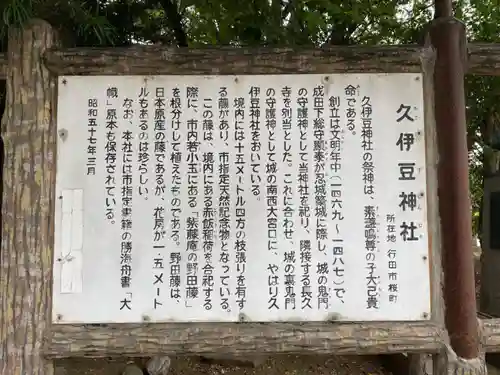 久伊豆神社
所在地 行田市桜町
久伊豆神社の祭神は、素戔嗚尊の子大己貴
命である。
創立は文明年中（一四六九〜一四八七）で、
成田下総守顕泰が忍城築城に際し、城の鬼門
の守護神として当神社を祀り、隣接する長久
寺を別当とした。これに合わせ、城の裏鬼門
の守護神として城の南西大宮口に、やはり久
伊豆神社をおいている。
境内には十五メートル四方の枝張りを有す
る藤があり、市指定天然記念物となっている。
この藤は、境内にある赤飯稲荷を合祀する
際に、市内若小玉にある「紫藤庵の野田藤」
を根分けして植えたものである。野田藤は、
日本原産の藤であるが、花房が一・五メート
ルもあるのは珍らしい。
なお、本社には市指定書籍の勝海舟書「大
幟」原本も保存されている。
昭和五十七年三月